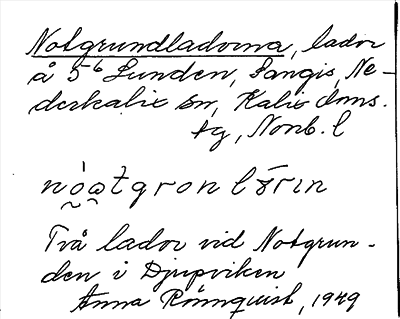 Notgrundladorna, lador
å 5⁶ Lunden, Sangis, Ne-
derkalix sn, Kalix doms.
tg, Norrb. l
Två lador vid Notgrun-
den i Djupviken
Anna Rönnquist, 1949